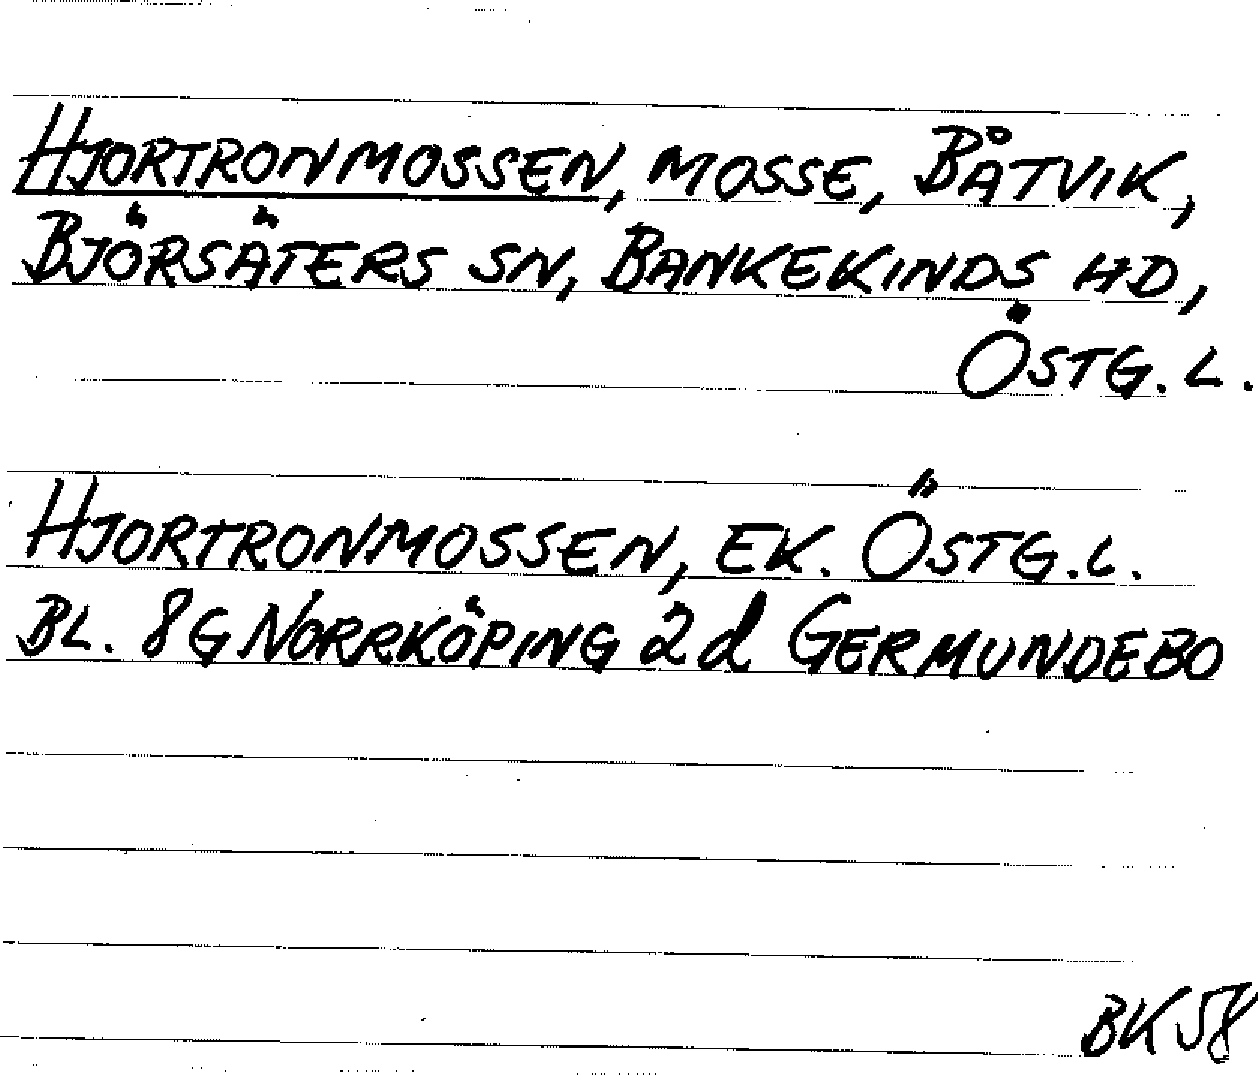 HJORTRONMOSSEN, MOSSE, BÅTVIK,
BJÖRSÄTERS SN, BANKEKINDS HD,
ÖSTG. L.
HJORTRONMOSSEN, EK. ÖSTG.L.
BL. 8G NORRKÖPING 2d GERMUNDEBO
BK58